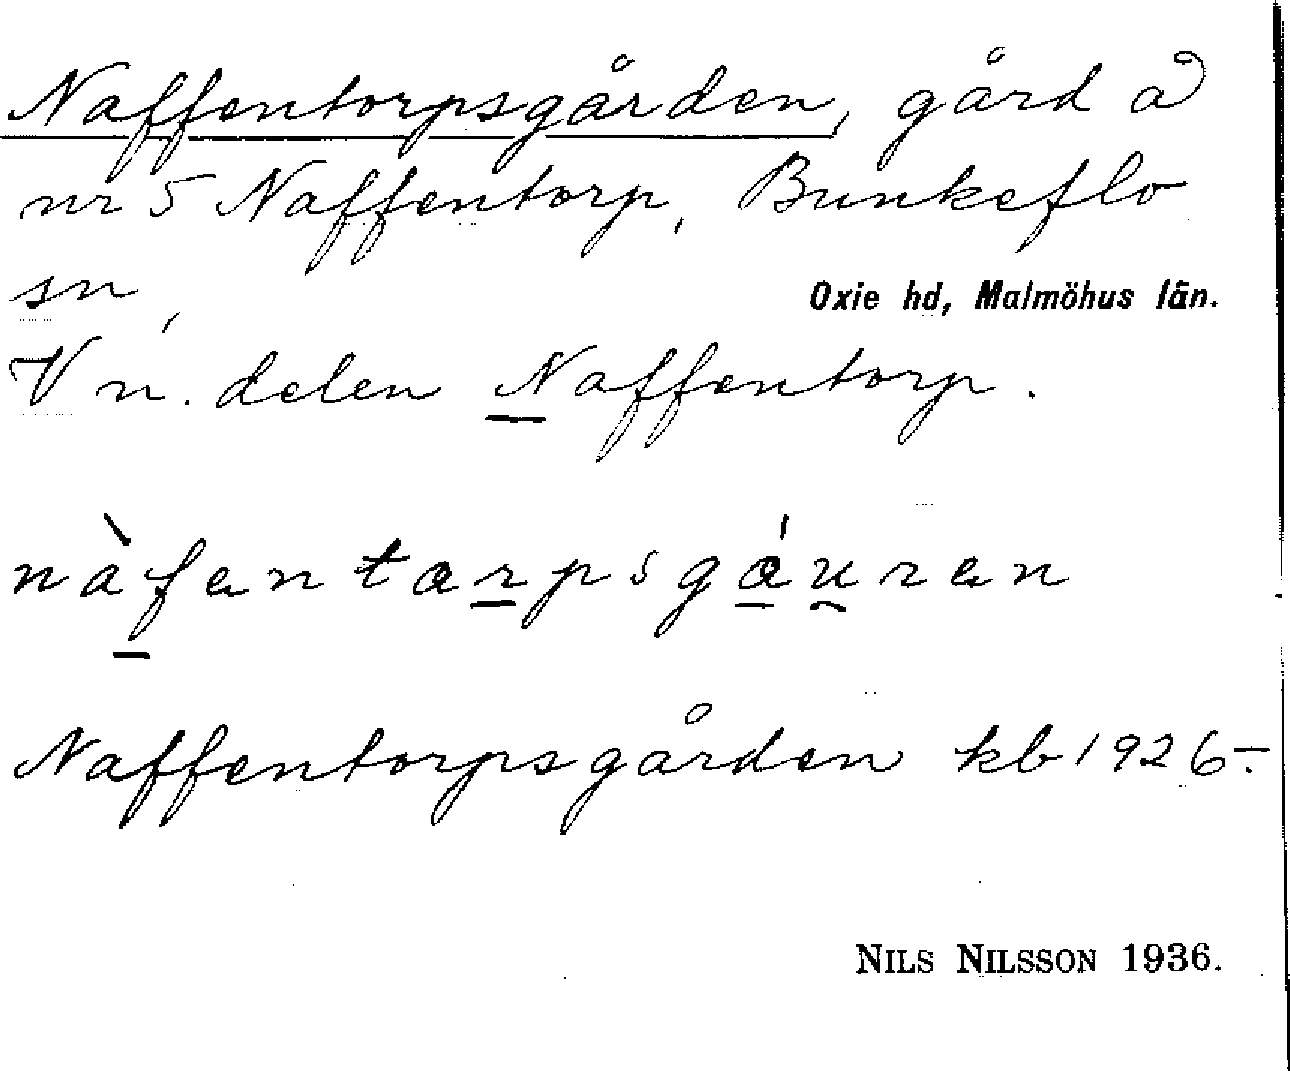 Naffentorpsgården, gård å
nr 5 Naffentorp, Bunkeflo
sn, Oxie hd, Malmöhus län.
V n. delen Naffentorp.
nàfentarpsgáuren
Naffentorpsgården kb 1926-.
NILS NILSSON 1936.